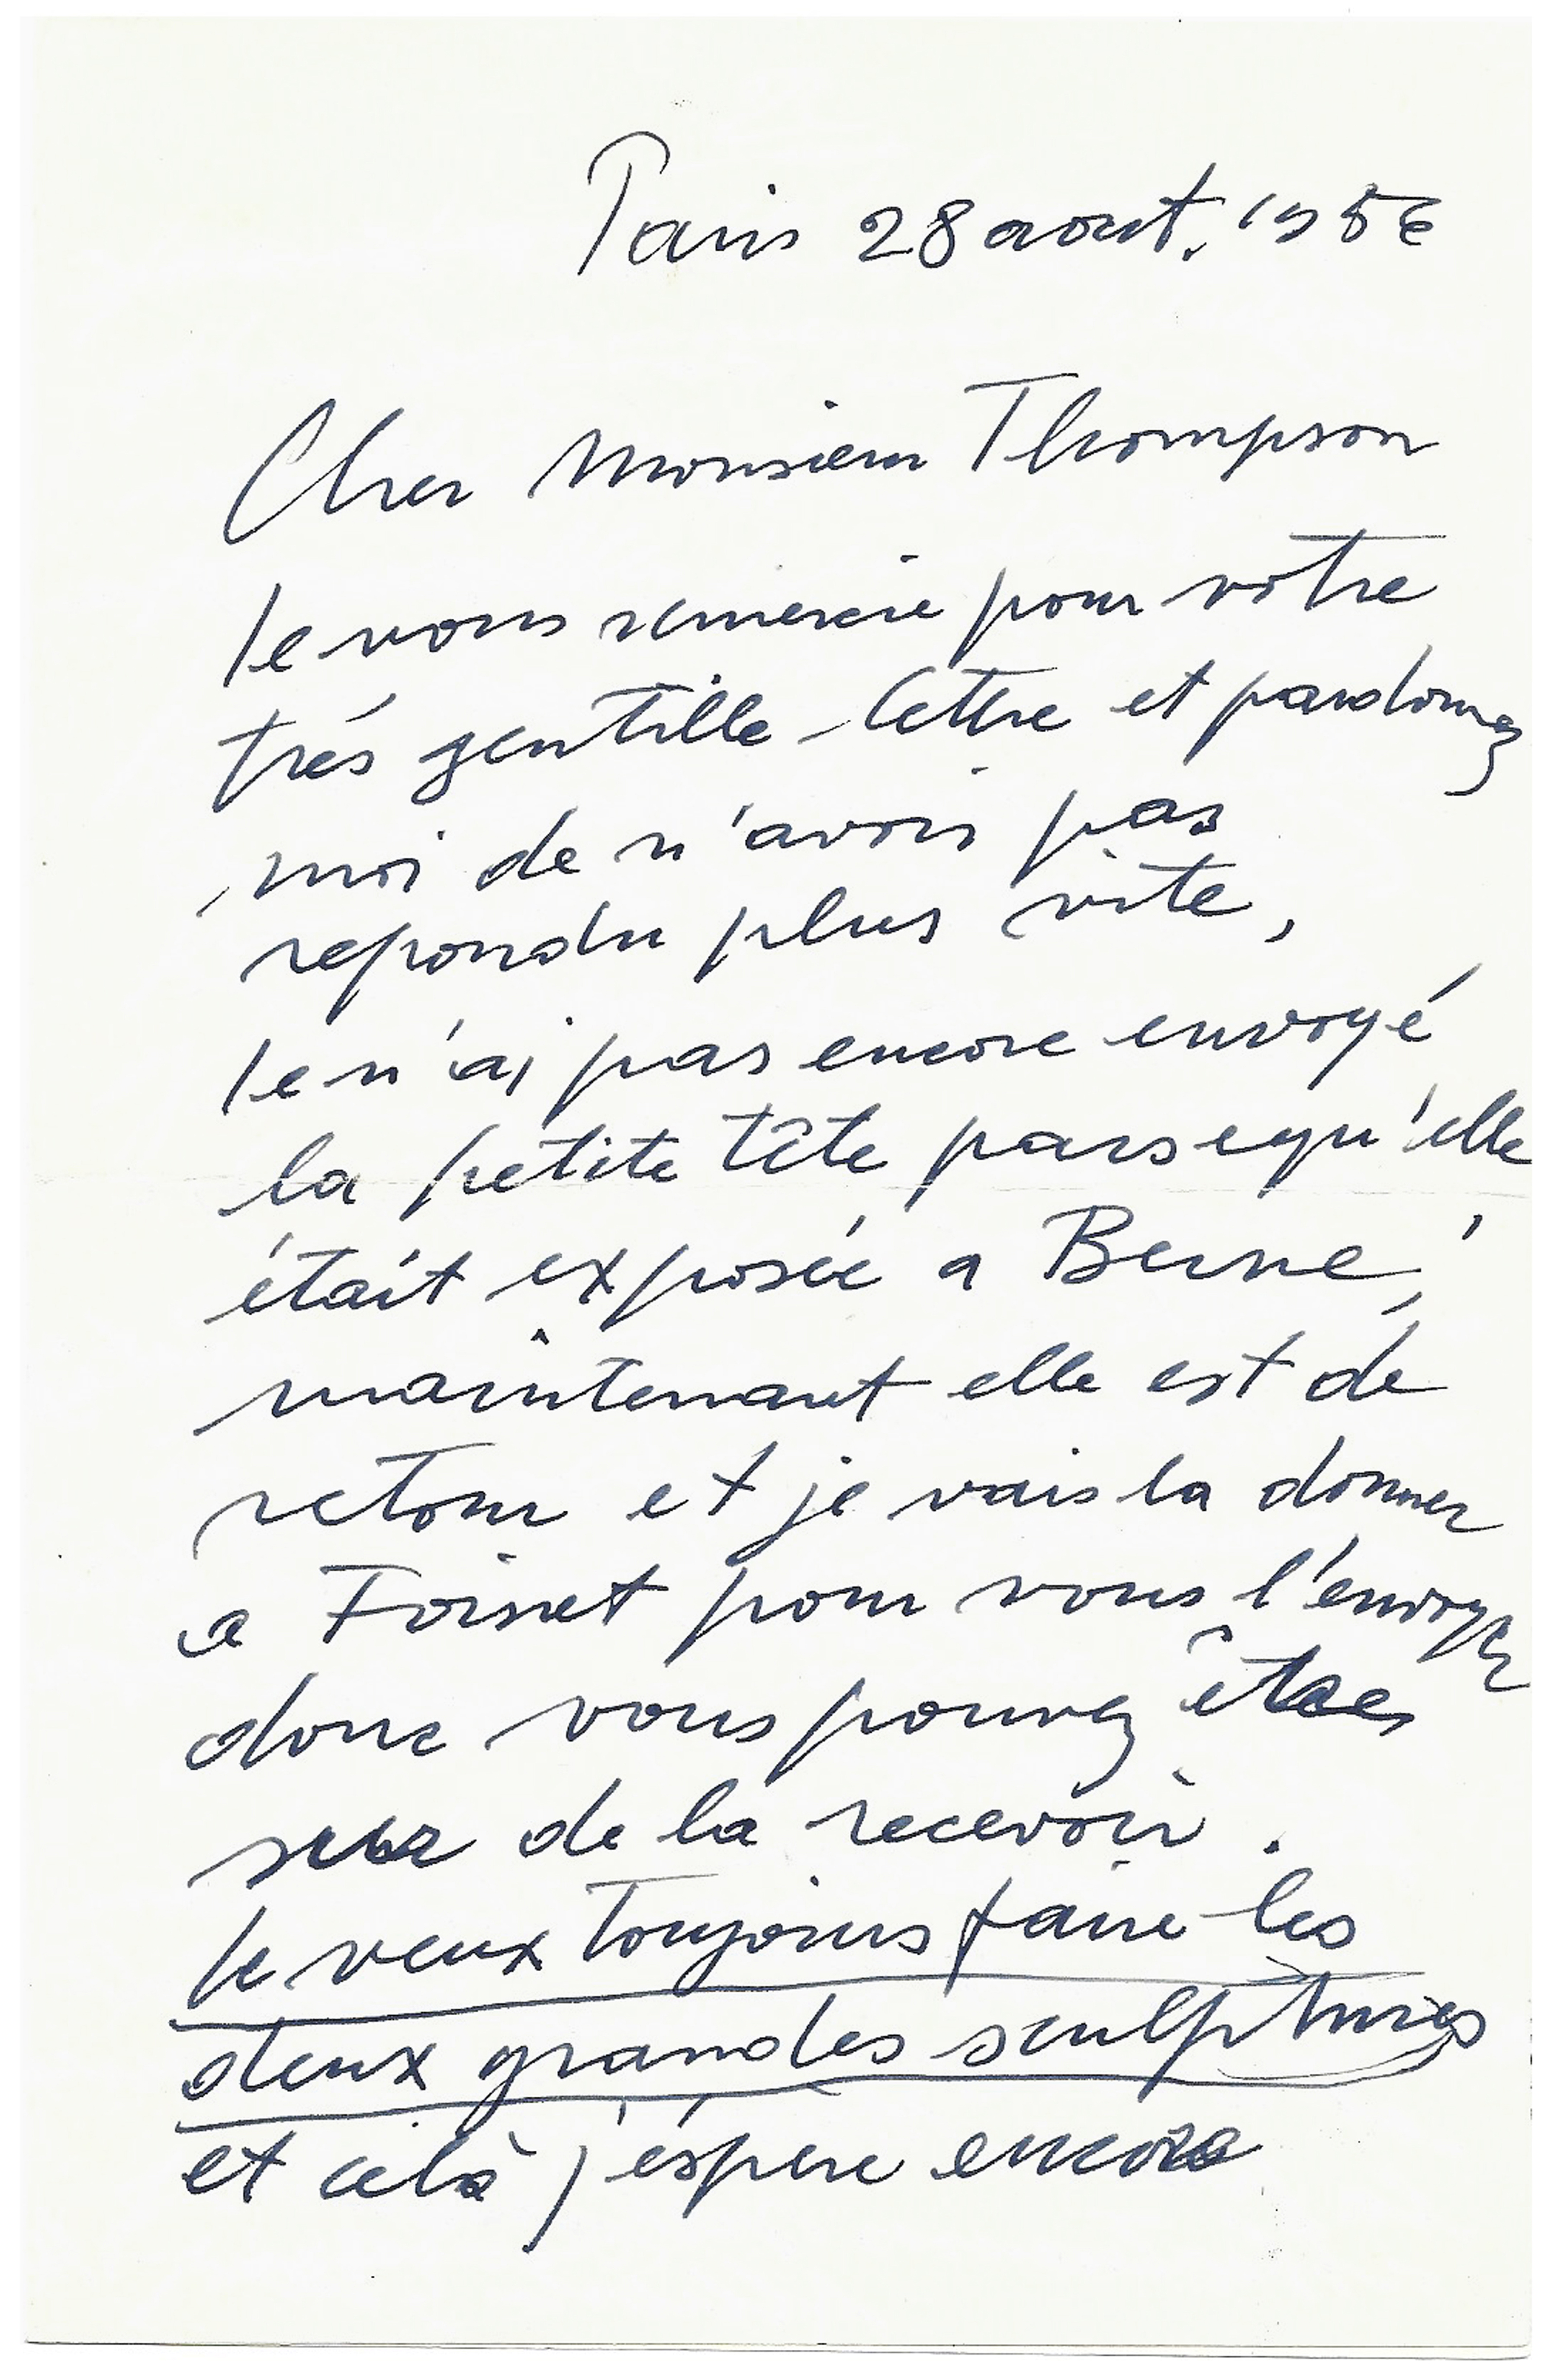 Paris 28 aout. 1956
Cher Monsieur Thompson
Je vous remercie pour votre
trés gentille lettre et pardonnez
moi de n'avoir pas
repondu plus vite,
Je n'ai pas encore envoyé
la petite tête parsequ'elle
était exposée a Berne,
maintenant elle est de
retour et je vais la donner
a Foinet pour vous l'envoyer
donc vous pouvez être
sur de la recevoir.
Je veux toujours faire les
deux grandes sculptures
et celà j'éspere encore